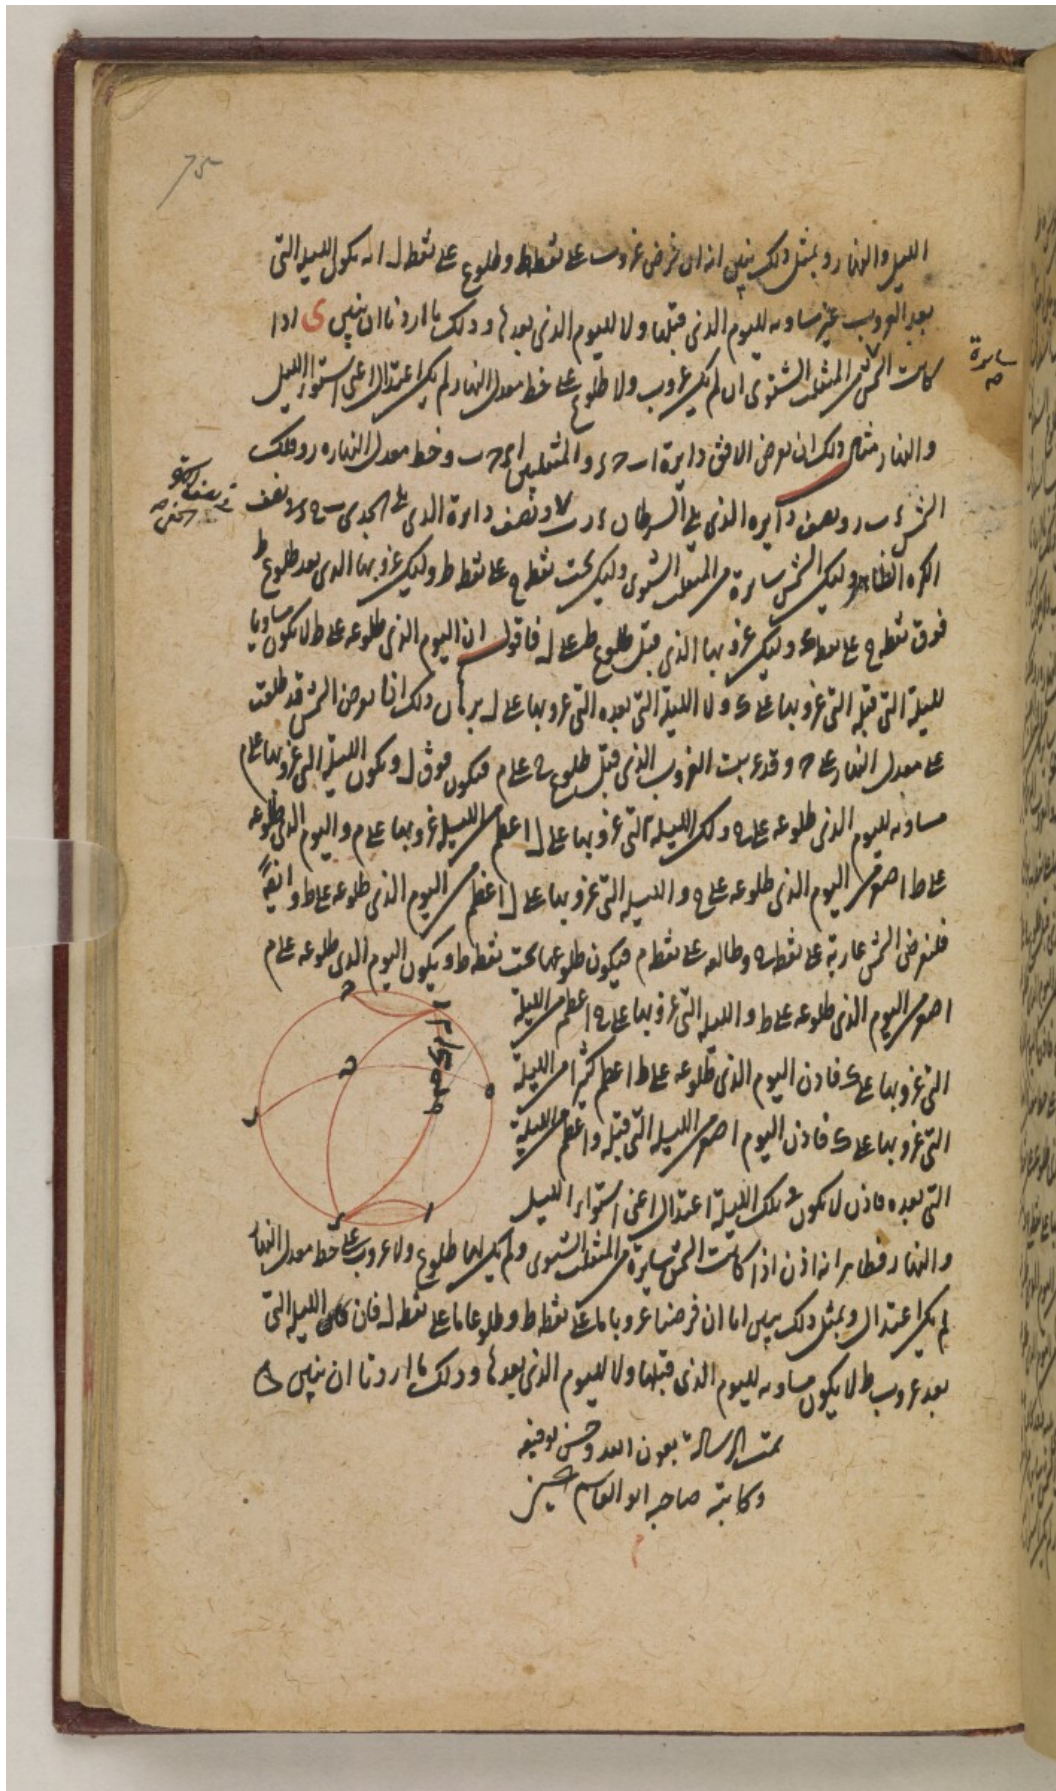 75
الليل والنهار وبمثل ذلك يتبين انه ان فرض غروب على نقطة ط وطلوع على نقطة ل انه يكون الليل التى
بعد الغروب غير مساويه لليوم الذى قبلها ولا لليوم الذى بعدها وذلك ما اردنا ان يتبين ى اذا
سايرة
كانت الشمس المنقلب الشتوى ان لم يكن غروب ولا طلوع على خط معدل النهار لم يكن اعتدال اعنى استواء الليل
والنهار مثال ذلك ان نفرض الافق دايرة ا ب ح د والمنقلبين وخط معدل النهار وفلك
الشمس ونصف دايره الذى يلى السرطان ونصف دايرة الذى يلى الجدى نصف
الكره الظاهر وليكن الشمس سايرة من المنقلب الشتوى وليكن تحت نقطة ح على نقطة ط وليكن غروبها الذى بعد طلوع ط
فوق نقطة ح على نقطة ك وليكن غروبها الذى قبل طلوع ط على ل فاقول ان اليوم الذى طلوعه على ط لا يكون مساويا
لليلة التى قبله التى غروبها على ك ولا الليلة التى بعده التى غروبها على ل برهان ذلك انا نفرض الشمس قد طلعت
على معدل النهار على ح وقد غربت الغروب الذى قبل طلوع ح على م فيكون فوق ل ويكون الليلة التى غروبها على م
مساويه لليوم الذى طلوعه على ح ولكن الليلة التى غروبها على ل اعظم من الليله غروبها على م واليوم الذى طلوعه
على ط اصغر من اليوم الذى طلوعه على ح والليله التى غروبها على ل اعظم من اليوم الذى طلوعه على ط وايضا
فلنفرض الشمس غاربة على نقطة ح وطالعه على نقطة م فيكون طلوعها تحت نقطة ط ويكون اليوم الذى طلوعه على م
اصغر من اليوم الذى طلوعه على ط والليله التى غروبها على ح اعظم من الليلة
التى غروبها على ك فاذن اليوم الذى طلوعه على ط اعظم كثيرا من الليلة
التى غروبها على ك فاذن اليوم اصغر من الليله التى قبله واعظم من الليلة
التى بعده فاذن لا يكون فى تلك الليلة اعتدال اعنى استواء الليل
والنهار فظاهر انه اذن اذا كانت الشمس سايرة من المنقلب الشتوى ولم يكن لها طلوع ولا غروب على خط معدل النهار
لم يكن اعتدال وبمثل ذلك يتبين اما ان فرضنا غروبا ما على نقطة ط وطلوعا ما على نقطة ل فان الليله التى
بعد غروب ط لا يكون مساويه لليوم الذى قبلها ولا لليوم الذى بعدها وذلك ما اردنا ان يتبين
تمت الرسالة بعون الله وحسن توفيقه
وكاتبه صاحبه ابو القاسم